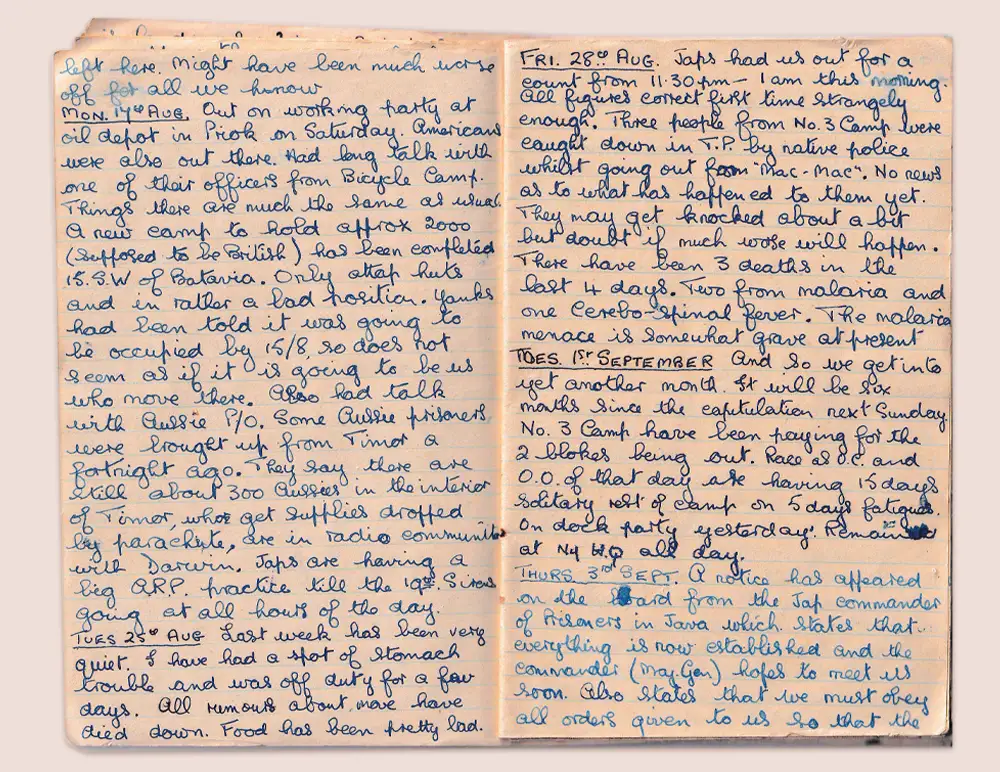 left here. Might have been much worse
off for all we honour
MON. 17th AUG. Out on working party at
oil depot in Priok on Saturday. Americans
were also out there. Had long talk with
one of their officers from Bicycle Camp.
Things there are much the same as usual
A new camp to hold approx 2000
(supposed to be British) has been completed
15. S.W of Batavia. Only attap huts
and in rather a bad position. Yanks
had been told it was going to
be occupied by 15/8, so does not
seem as if it is going to be us
who move there. Also had talk
with Aussie P/O. Some Aussie prisoners
were brought up from Timor a
fortnight ago. They say there are
still about 300 Aussies in the interior
of Timor, who get supplies dropped
by parachute, are in radio
with Darwin. Japs are having a
big A.R.P. practice till the 19th. Sirens
going at all hours of the day.
TUES 25th AUG Last week has been very
quiet. I have had a spot of stomach
trouble and was off duty for a few
days. All rumours about move have
died down. Food has been pretty bad.
FRI. 28th AUG. Japs had us out for a
count from 11:30 pm – 1 am this morning.
All figures correct first time strangely
enough. Three people from No. 3 Camp were
caught down in T.P. by native police
whilst going out from "Mac-Mac". No news
as to what has happened to them yet.
They may get knocked about a bit
but doubt if much worse will happen.
There have been 3 deaths in the
last 4 days. Two from malaria and
one Cerebo-spinal fever. The malaria
menace is somewhat grave at present
TUES. 1st SEPTEMBER And so we get into
yet another month. It will be six
months since the capitulation next Sunday
No. 3 Camp have been paying for the
2 blokes being out. Race as O.C. and
O.O. of that day are having 15 days
solitary rest of camp on 5 days fatigues.
On dock party yesterday. Remained
at N4 H.Q all day.
THURS. 3rd SEPT. A notice has appeared
on the board from the Jap commander
of Prisoners in Java which states that
everything is now established and the
commander (May. Gen) hopes to meet us
soon. Also states that we must obey
all orders given to us so that the